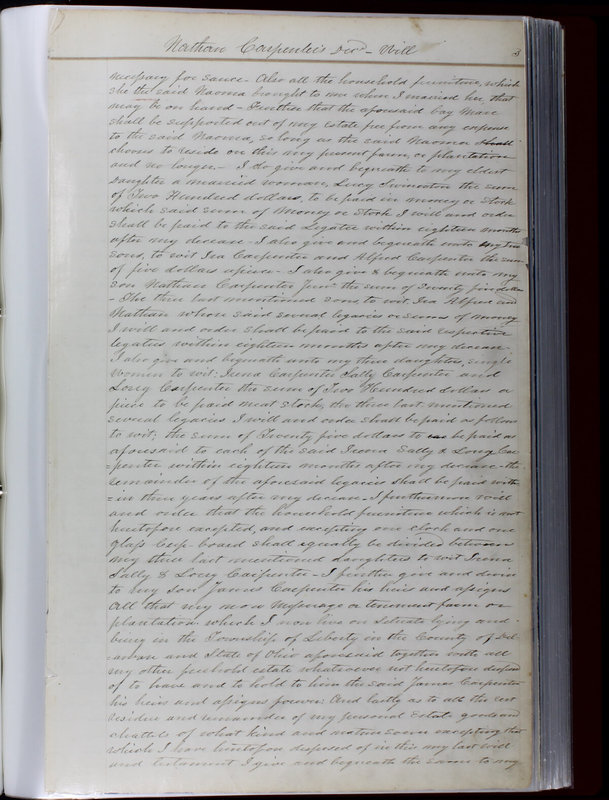 Nathan Carpenter's Decd - Will
3
necessary for sauce - Also all the household furniture, which
she the said Naoma brought to me when I married her, that
may be on hand - Further that the aforesaid bay mare
shall be supported out of my estate free from any expense
to the said Naoma, so long as the said Naoma shall
chooses to reside on this my present farm, or plantation
and no longer, - I do give and bequeath to my eldest
daughter a married woman, Lucy Swinton the sum
of Two Hundred dollars, to be paid in money or stock
which said sum of money or stock I will and order
shall be paid to the said Legatee within eighteen months
after my decease - I also give and bequeath unto my two
sons, to wit Ira Carpenter and Alfred Carpenter the sum
of five dollars apiece - I also give & bequeath unto my
son Nathan Carpenter Junr the sum of Twenty five dollars
- The three last mentioned sons, to wit, Ira Alfred and
Nathan whose said several legacies or sums of money
I will and order shall be paid to the said respective
legatees within eighteen months after my decease -
I also give and bequeath unto my three daughters, single
women to wit: Irena Carpenter Sally Carpenter and
Lorry Carpenter the sum of Two Hundred dollars a
piece to be paid neat stock, the three last mentioned
several legacies I will and order shall be paid as follows
to wit; the sum of Twenty five dollars to be paid as
aforesaid to each of the said Irena Sally & Lorry Car
=penter within eighteen months after my decease - the
remainder of the aforesaid legacies shall be paid with
=in three years after my decease - I furthermore will
and order that the household furniture which is not
heretofore excepted, and excepting one clock and one
glass Cup-board shall equally be divided between
my three last mentioned daughters to wit Irena
Sally & Lorry Carpenter - I further give and devise
to my son James Carpenter his heirs and assigns
all that my now messuage or tenement farm or
plantation which I now live on situate lying and
being in the Township of Liberty in the County of Del
=aware and State of Ohio aforesaid together with all
my other freehold estate whatsoever not heretofore disposed
of to have and to hold to him the said James Carpenter
his heirs and assigns forever. And lastly as to all the rest
residue and remainder of my personal estate goods and
chattels of what kind and nature soever excepting that
which I have heretofore disposed of in this my last will
and testament I give and bequeath the same to my